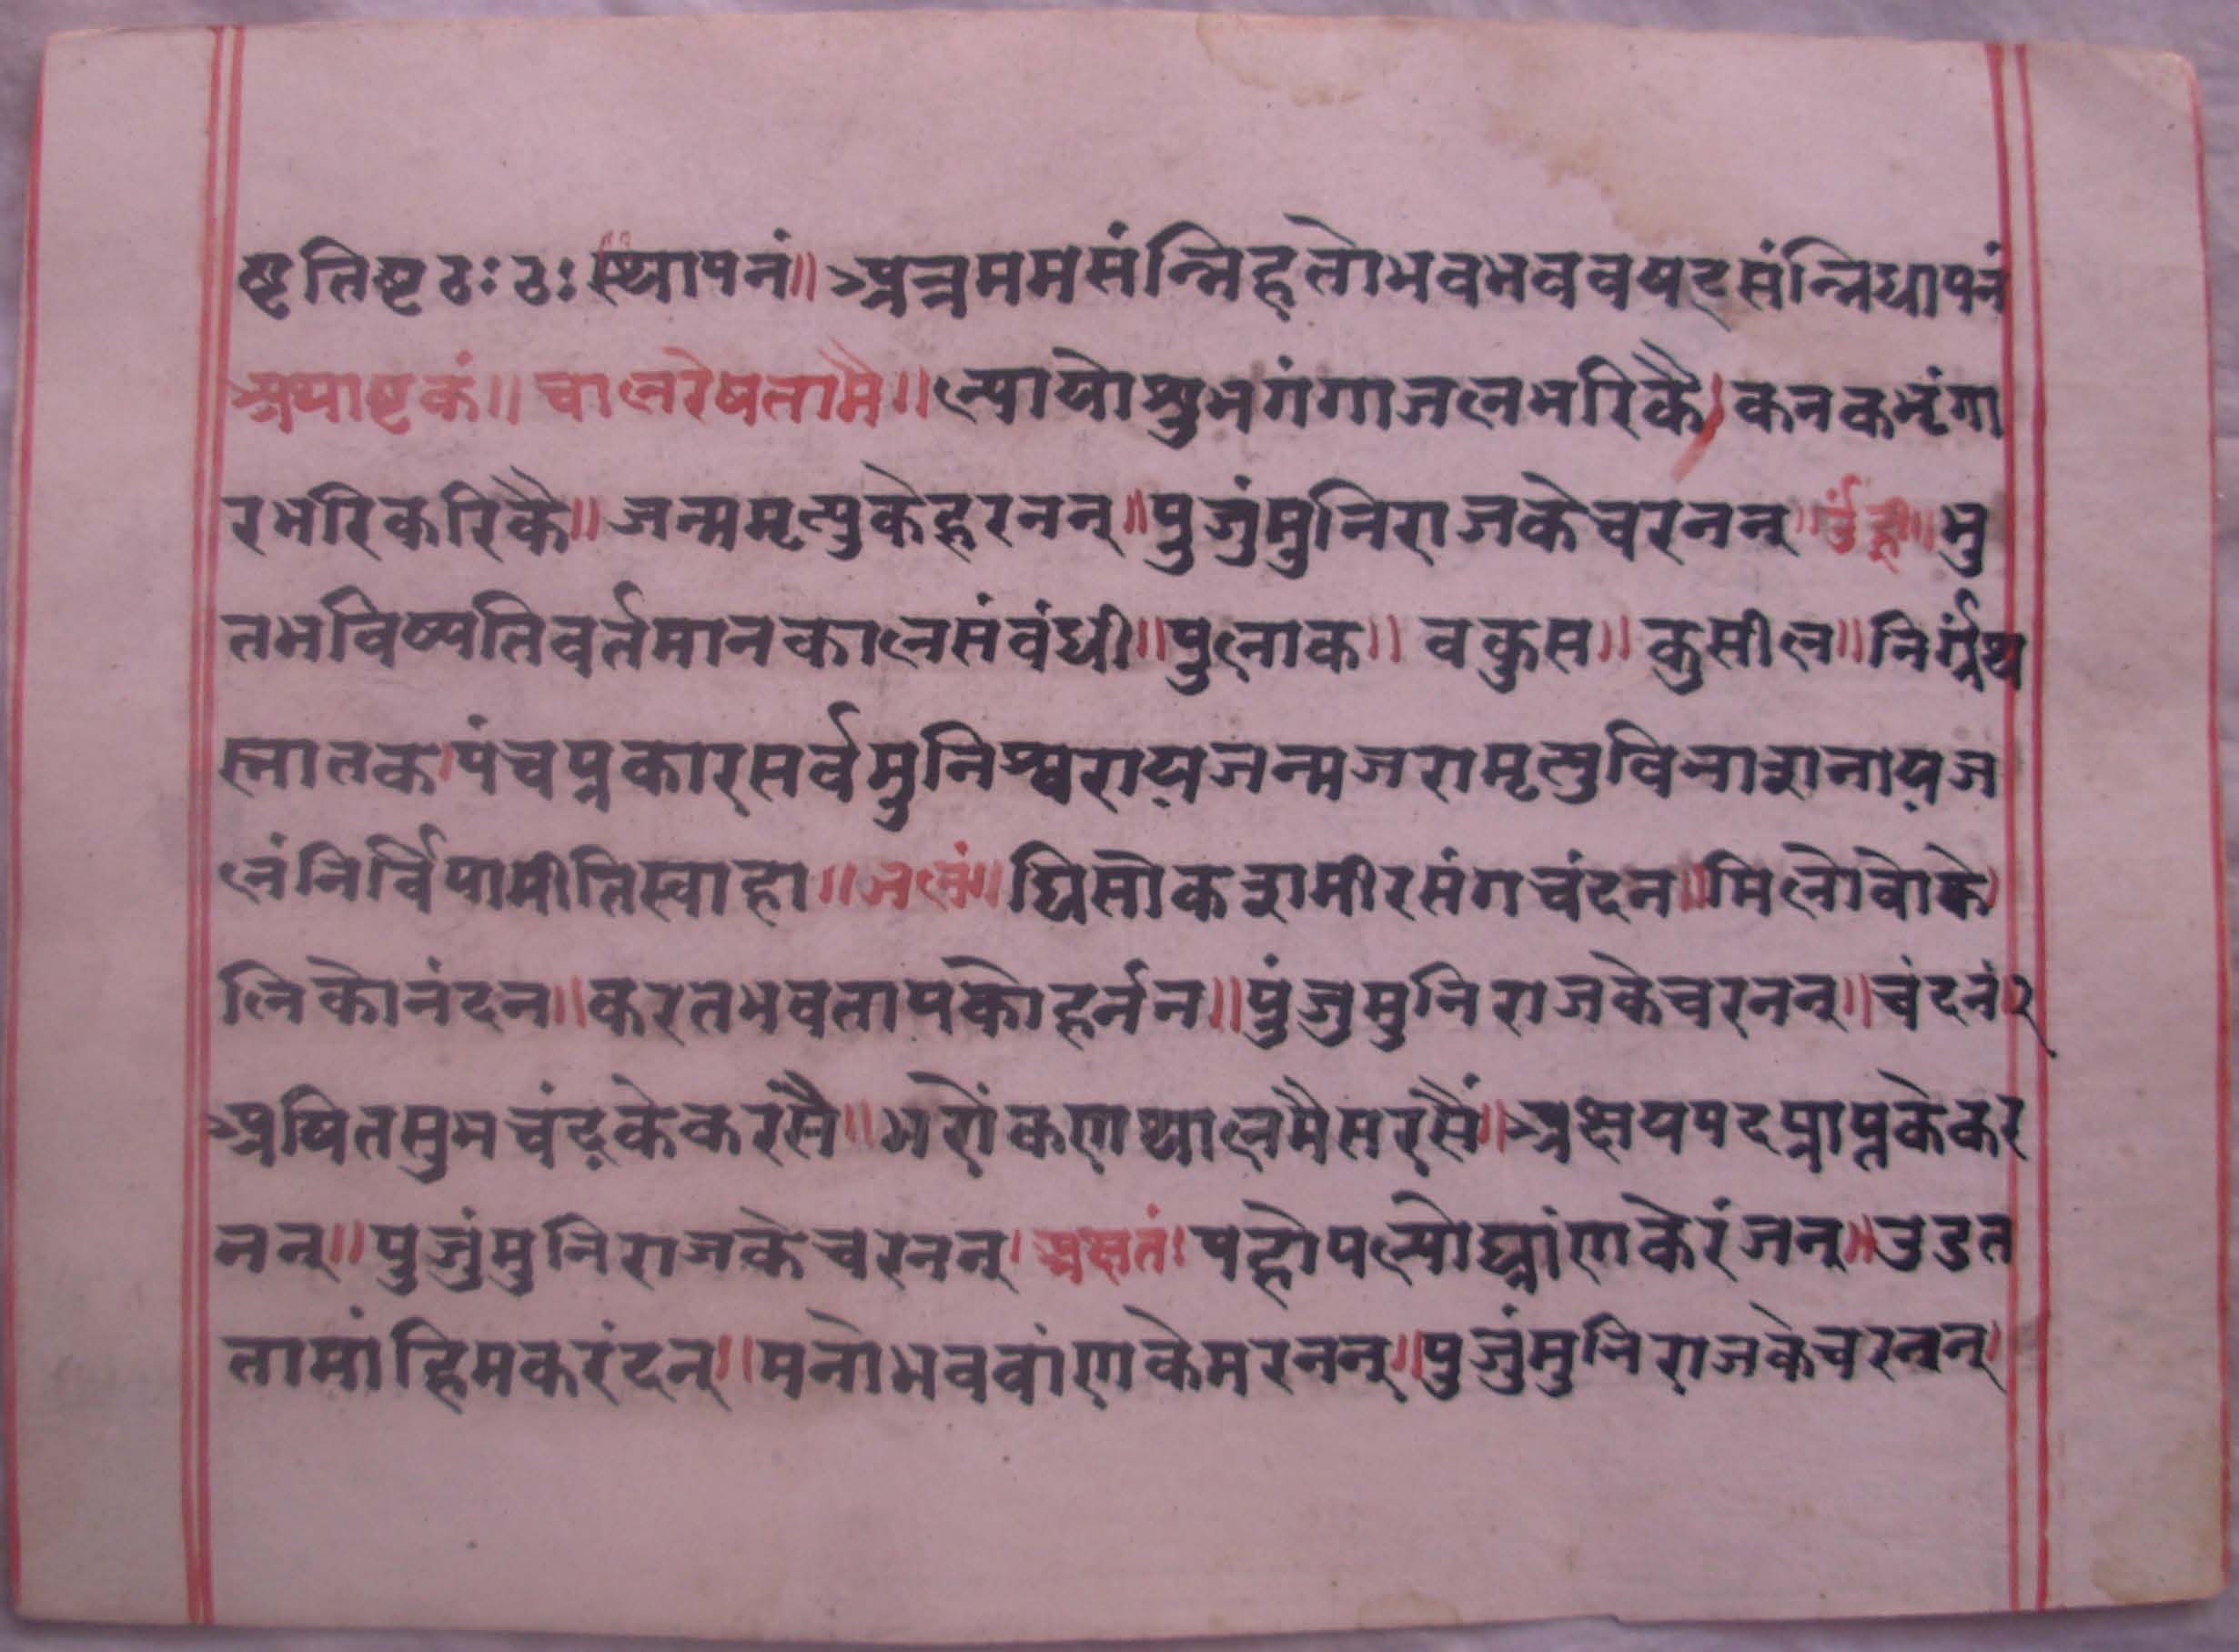 ष्ट तिष्ट ठः ठः स्थापनं॥ अत्र मम संन्निहतो भव भव वषद् संन्निधापनं
अथाष्टकं॥ चाल रेषतामै॥ ल्यायो शुभ गंगाजल भरिकै। कनक भृंगा
र भरि करिकै॥ जन्म मृत्यु के हरनन्॥ पुजुं मुनिराज के चरनन्॥ उँ ह्रीं॥ भु
त भविष्यति वर्तमान काल संवंधी॥ पुलाक॥ वकुस॥ कुसील॥ निर्ग्रंथ
स्नातक। पंच प्रकार सर्व मुनिश्वराय जन्म जरा मृत्यु विनाशनाय ज
लं निर्विपामीति स्वाहा॥ जलं॥ घिसो कशमीर संग चंदन॥ मिलोवो के
लि को नंदन॥ करत भव ताप को हर्नन॥ पुंजु मुनिराज के चरनन्॥ चंदनं २
अषित सुभ चंद्र के करसै॥ भरों कण थाल मै सरसैं॥ अक्षय पद प्राप्त के कर
नन्॥ पुजुं मुनिराज के चरनन्। अक्षतं। पहोप ल्यो घ्रांण के रंजन्॥ उडत
ता मांहि मकरंदन्॥ मनोभव वांण के मरनन्॥ पुजुं मुनिराज के चरनन्।